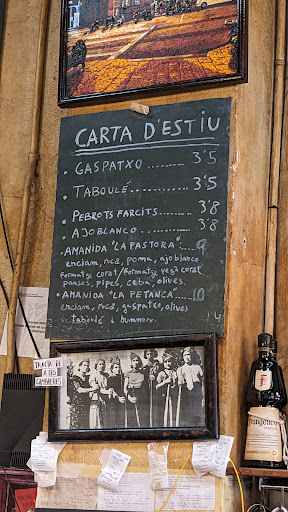 CARTA D'ESTIU
· GASPATXO ......... 3'5
· TABOULÉ ............ 3'5
· PEBROTS FARCITS ..... 3'8
· AJOBLANCO .......... 3'8
· AMANIDA "LA PASTORA" .... 9
enciam, ruca, poma, ajoblanco
Formatge curat/Formatge vegà curat
panses, pipes, ceba, olives.
· AMANIDA "LA PETANCA" ..... 10
enciam, ruca, gaspatxo, olives
taboulé i hummus
TRACTA BÉ
A LES
CAMBRERES
Frangelico